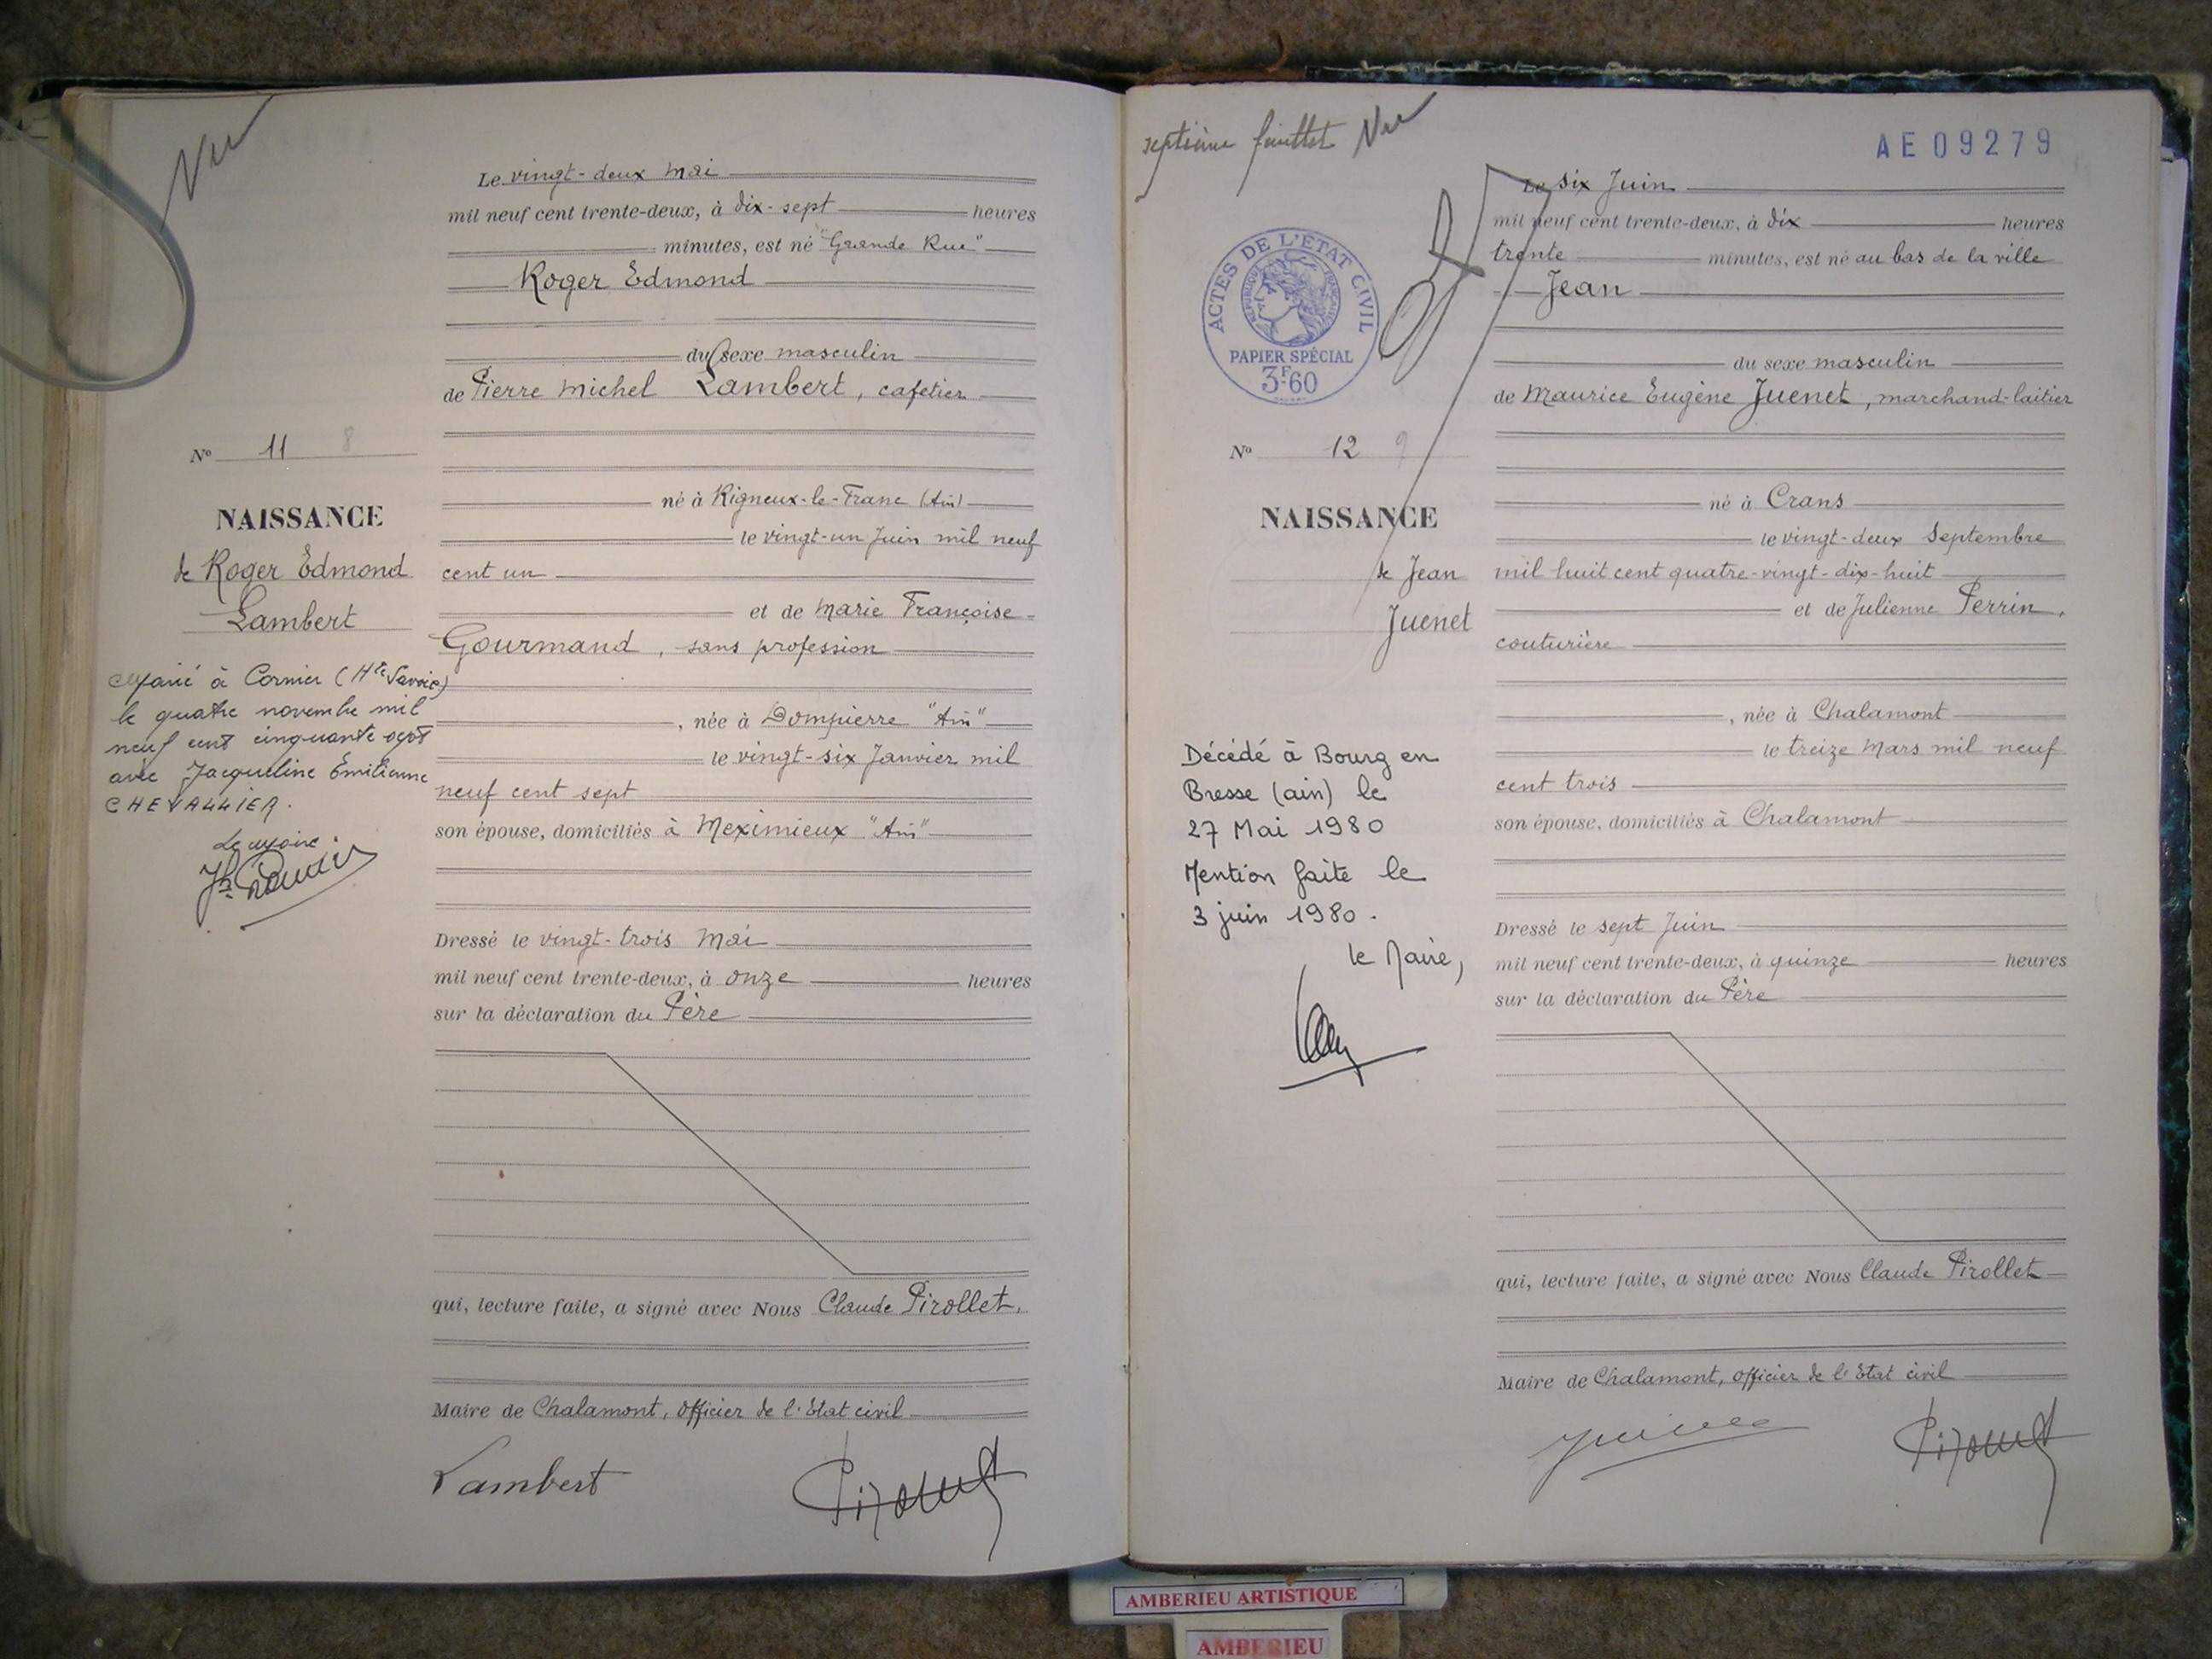 Vu
Le vingt-deux mai
mil neuf cent trente-deux, à dix-sept heures
minutes, est né "Grande Rue"
Roger Edmond
du sexe masculin
de Pierre Michel Lambert, cafetier
N° 11 8
né à Rigneux-le-Franc (Ain)
NAISSANCE
le vingt-un Juin mil neuf
de Roger Edmond
cent un
Lambert
et de Marie Françoise
Gourmand, sans profession
Marié à Cornier (Hte Savoie)
le quatre novembre mil
neuf cent cinquante sept
avec Jacqueline Emilienne
CHEVALLIER.
Le Maire.
, née à Dompierre "Ain"
le vingt-six Janvier mil
neuf cent sept
son épouse, domiciliés à Meximieux "Ain"
Dressé le vingt-trois Mai
mil neuf cent trente-deux, à onze heures
sur la déclaration du Père
qui, lecture faite, a signé avec Nous Claude Pirollet,
Maire de Chalamont, officier de l'Etat civil
Lambert
Pirollet
septième feuillet Vu
AE09279
Le six Juin
mil neuf cent trente-deux, à dix heures
trente minutes, est né au bas de la ville
Jean
ACTES DE L'ÉTAT CIVIL
RÉPUBLIQUE FRANÇAISE
PAPIER SPÉCIAL
3F.60
du sexe masculin
de Maurice Eugène Juenet, marchand-laitier
N° 12 9
né à Crans
NAISSANCE
le vingt-deux Septembre
de Jean
mil huit cent quatre-vingt-dix-huit
Juenet
et de Julienne Perrin,
couturière
, née à Chalamont
le treize Mars mil neuf
cent trois
son épouse, domiciliés à Chalamont
Décédé à Bourg en
Bresse (ain) le
27 Mai 1980
Mention faite le
3 juin 1980.
le Maire,
Dressé le sept Juin
mil neuf cent trente-deux, à quinze heures
sur la déclaration du Père
qui, lecture faite, a signé avec Nous Claude Pirollet
Maire de Chalamont, officier de l'Etat civil
Pirollet
AMBERIEU ARTISTIQUE
AMBERIEU